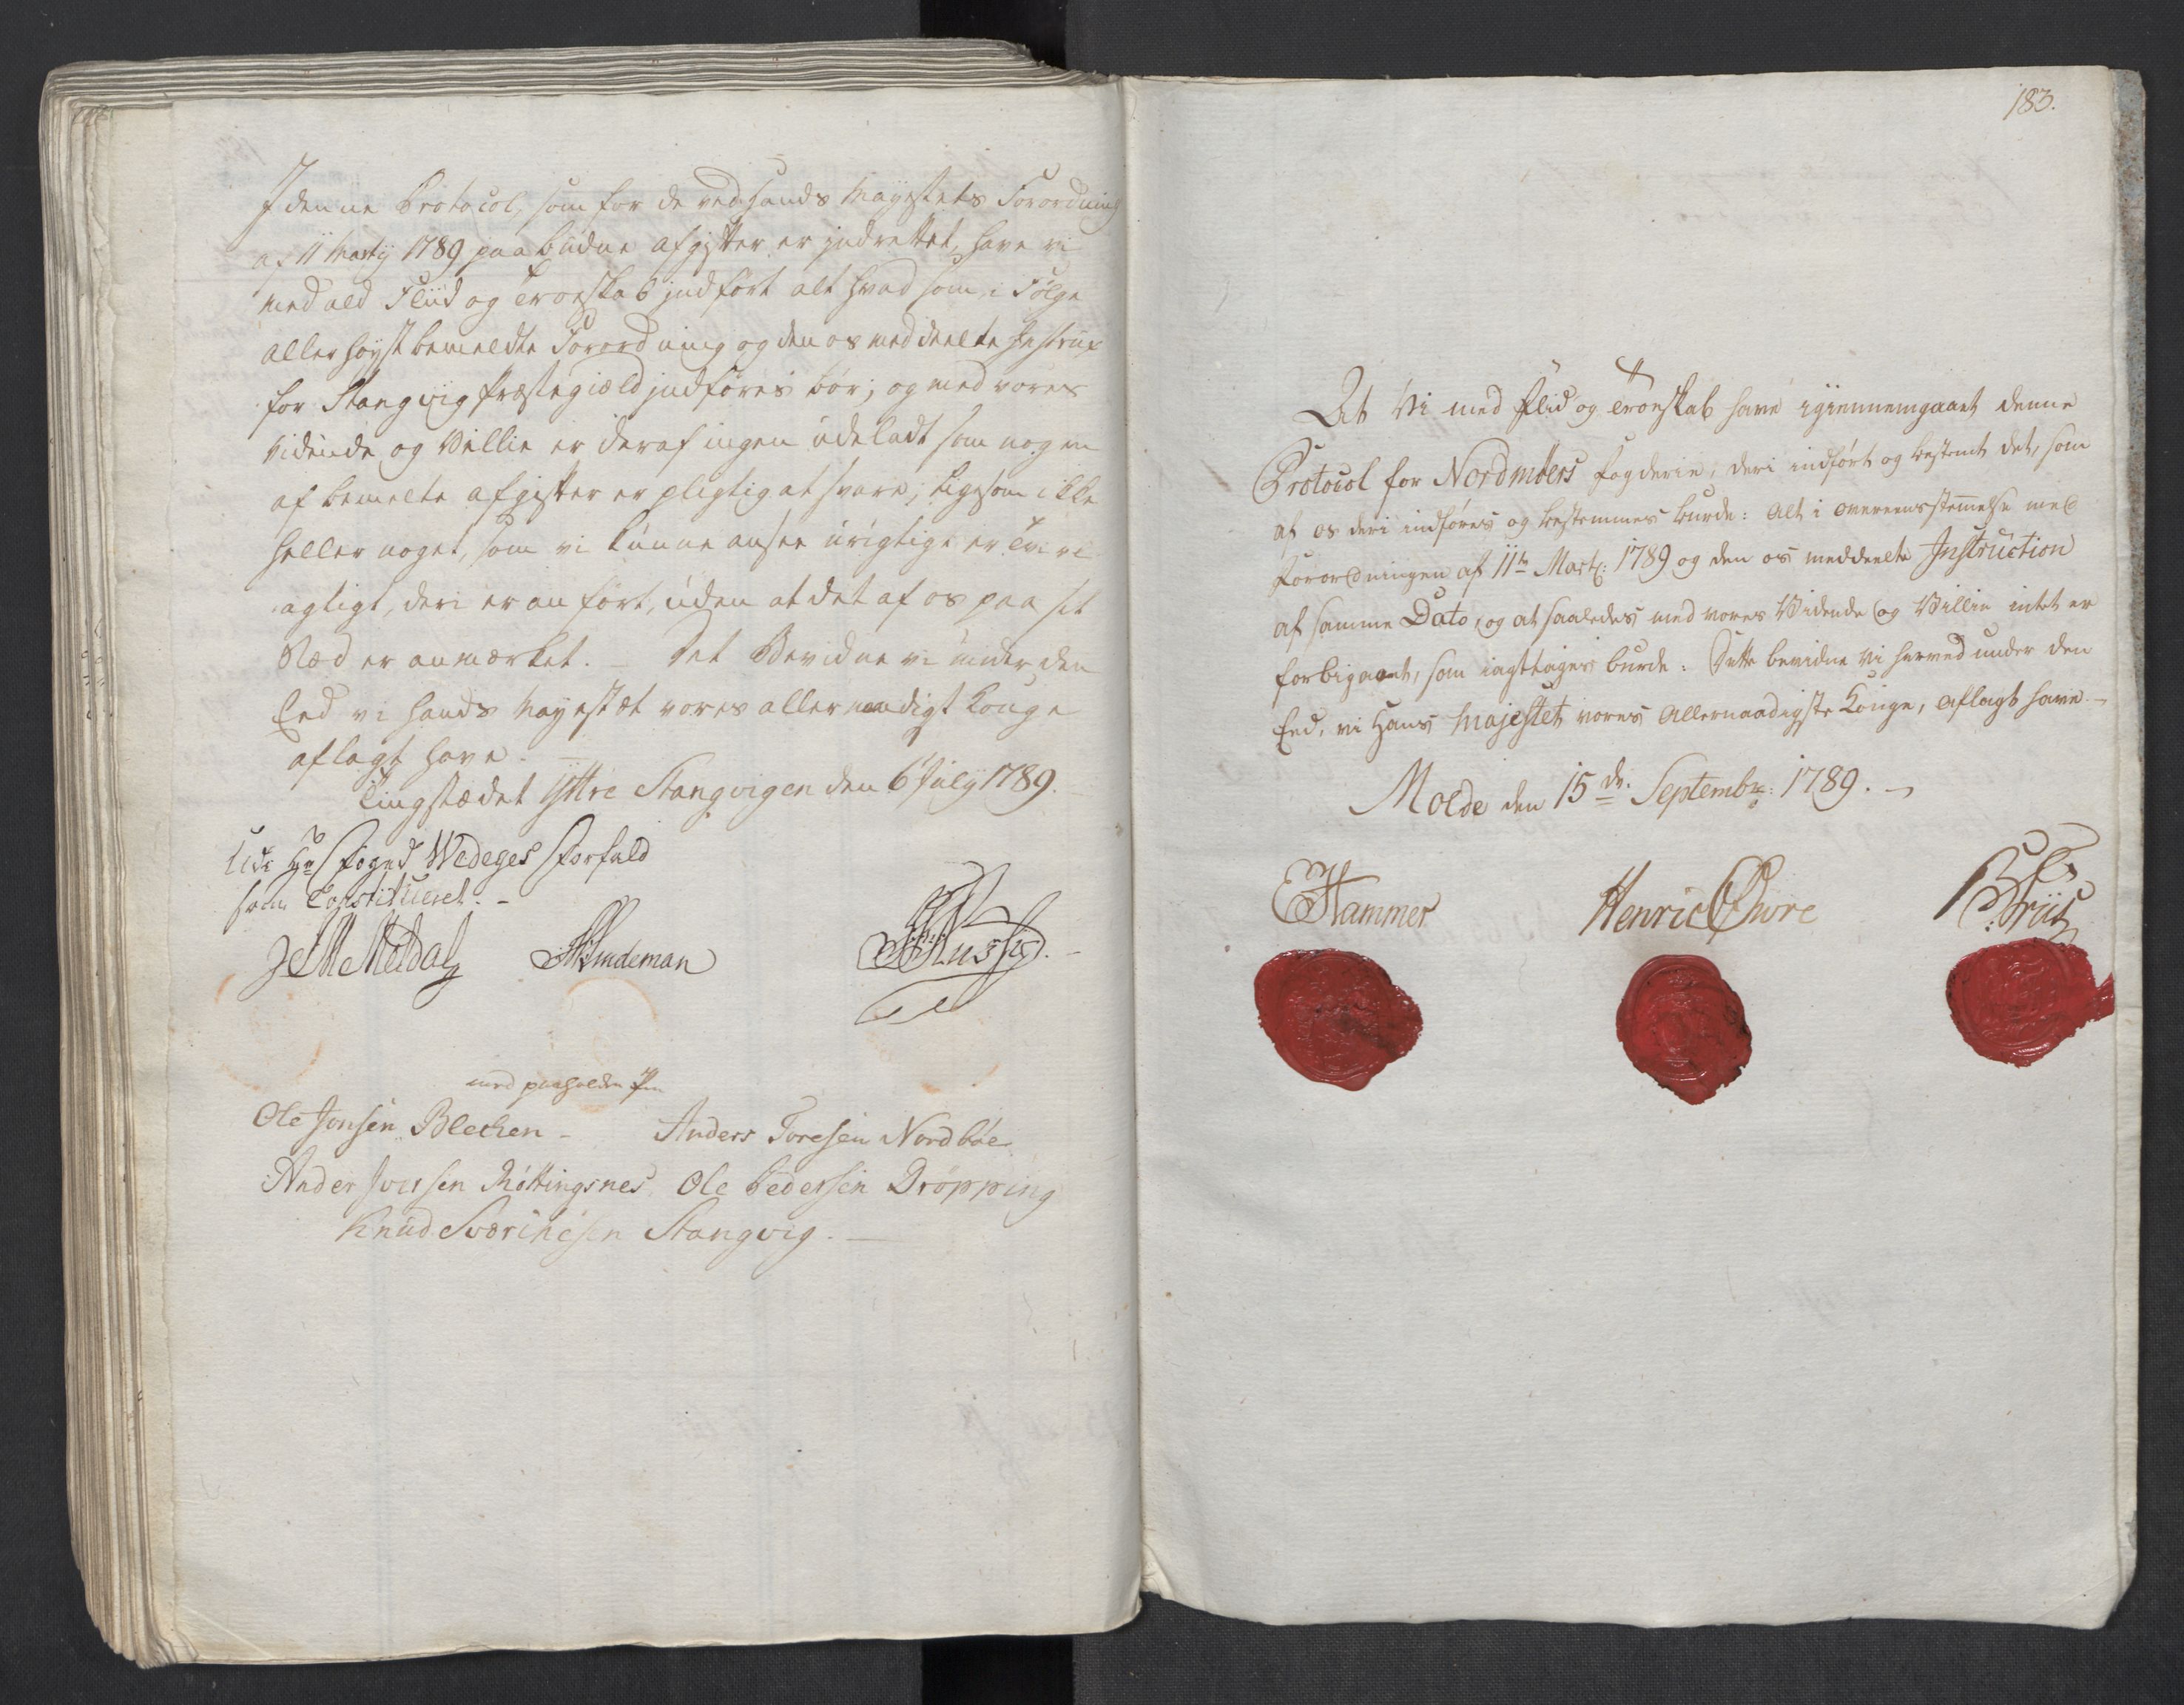 I denne Protocol, som for de ved Hands Mayestets Forordning
af 11 Marty 1789 paabudne afgifter er indrettet, have vi
med ald Fliid og Troeskab indført alt hvad som i Følge
allerhøyst bemeldte Forordning og den os meddeelte Instrux
for Stangvig Præstegiæld indføres bør; og med vores
Vidende og Villie er deraf ingen udeladt som nogen
af bemelte afgifter er pligtig at svare, ligesom ikke
heller noget, som vi kunne ansee urigtigt er
agtigt, deri er anført, uden at det af os paa sit
Stæd er anmærket. – Det Bevidne vi under den
Eed vi hands Mayestæt vores allernaadigst Konge
aflagt have. –
Tingstædet Yttre Stangvigen den 6 July 1789.
Udi Hr Foged Wedeges Forfald
som Constitueret. –
Meldal Lindeman
med paaholden Pen
Ole Jonsen Blechen – Anders Toresen Nordbøe
Ander Iversen Røttingsnes, Ole Pedersen Drøpping
Knud Sværchesen Stangvig. –
183.
At Vi med Fliid og Troeskab have igiennemgaaet denne
Protocol for Nordmøers Fogderie, deri indført og bestemt det, som
af os deri indføres og bestemmes burde: alt i overeensstemmelse med
Forordningen af 11te Marty: 1789 og den os meddeelte Instruction
af samme Dato, og at saaledes med vores Vidende og Villie intet er
forbigaaet, som iagttages burde: Dette bevidne Vi herved under den
Eed, vi Hans Majestet vores Allernaadigste Konge, aflagt have. –
Molde den 15de. Septembr: 1789. –
EHammer Henric Øwre